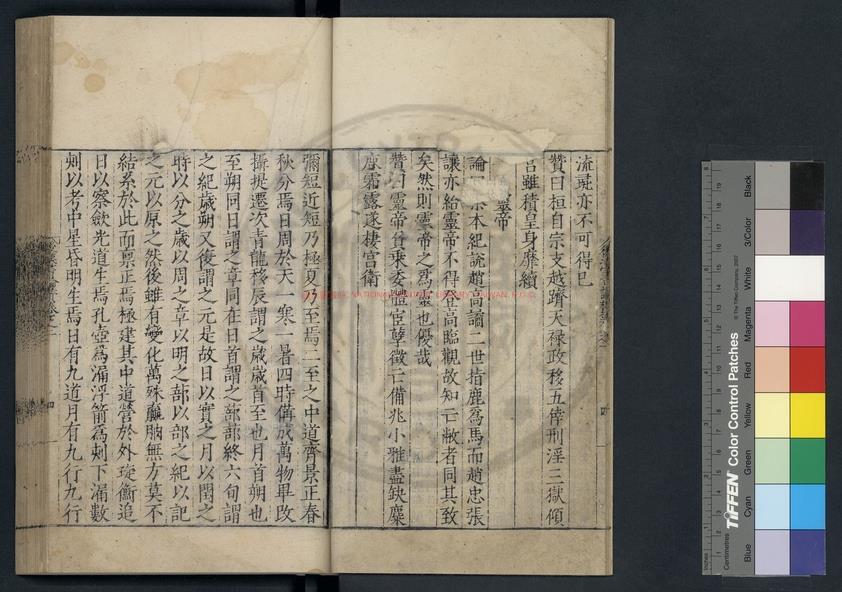 流彘亦不可得已
贊曰桓自宗支越躋天祿政移五倖刑淫三獄傾
宮雖積皇身靡續
靈帝
論曰秦本紀說趙高譎二世指鹿為馬而趙忠張
讓亦紿靈帝不得登高臨觀故知亡敝者同其致
矣然則靈帝之為靈也優哉
贊曰靈帝負乘委體宦孽徵亡備兆小雅盡缺麋
鹿霜露遂棲宮衛
彌短近短乃極夏乃至焉二至之中道齊景正春
秋分焉日周於天一寒一暑四時備成萬物畢改
攝提遷次青龍移辰謂之歲歲首至也月首朔也
至朔同日謂之章同在日首謂之蔀蔀終六旬謂
之紀歲朔又復謂之元是故日以實之月以閏之
時以分之歲以周之章以明之蔀以部之紀以記
之元以原之然後雖有變化萬殊贏朒無方莫不
結系於此而稟正焉極建其中道營於外璇衡追
日以察斂光道生焉孔壺為漏浮箭為刻下漏數
刻以考中星昏明生焉日有九道月有九行九行
四
四
NATIONAL CENTRAL LIBRARY, TAIWAN, R.O.C.
TIFFEN Color Control Patches
© The Tiffen Company, 2007
Centimetres
Inches
Blue
Cyan
Green
Yellow
Red
Magenta
White
3/Color
Black